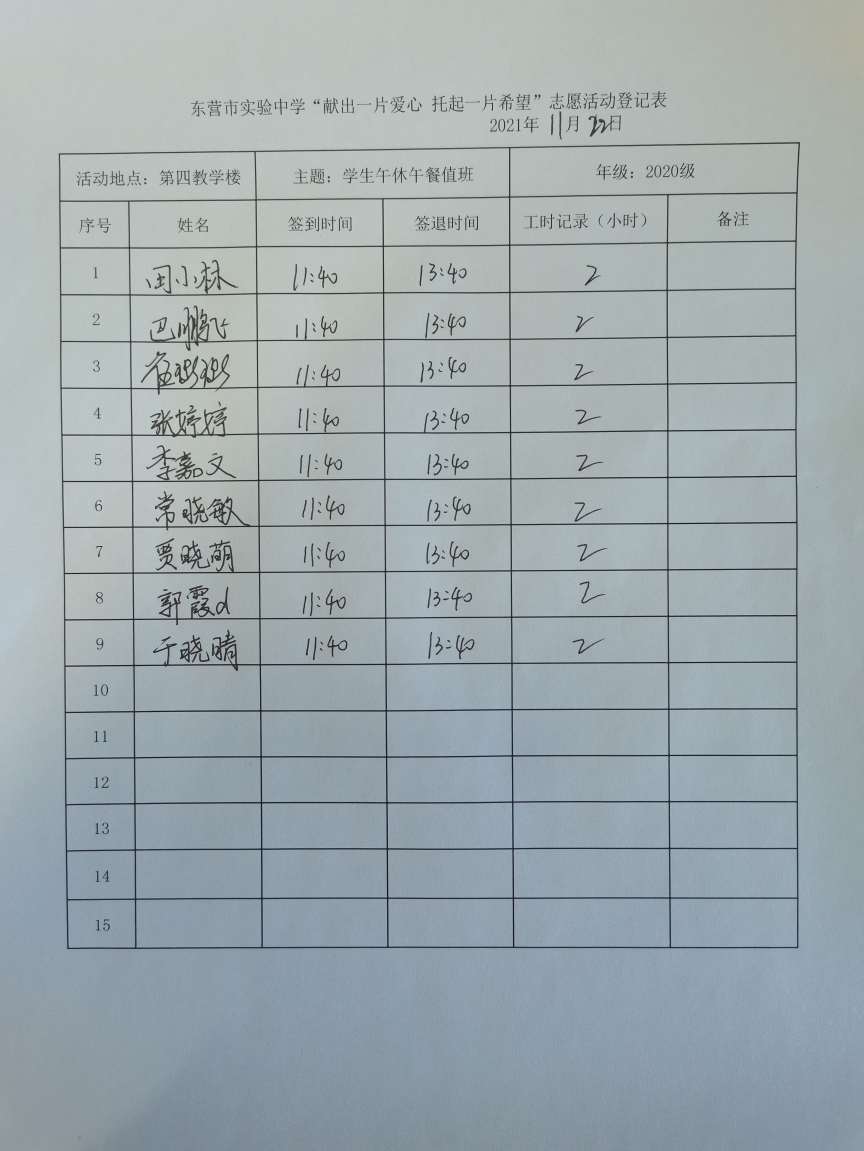 东营市实验中学“献出一片爱心 托起一片希望”志愿活动登记表
2021年 11月 22日
活动地点：第四教学楼 主题：学生午休午餐值班 年级：2020级
序号 姓名 签到时间 签退时间 工时记录（小时） 备注
1 田小林 11:40 13:40 2
2 巴鹏飞 11:40 13:40 2
3 11:40 13:40 2
4 张婷婷 11:40 13:40 2
5 李嘉文 11:40 13:40 2
6 常晓敏 11:40 13:40 2
7 贾晓萌 11:40 13:40 2
8 郭霞d 11:40 13:40 2
9 于晓晴 11:40 13:40 2
10
11
12
13
14
15